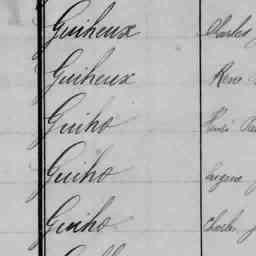 Guiheux Charles
Guiheux René
Guiho
Guiho Eugène
Guiho Charles